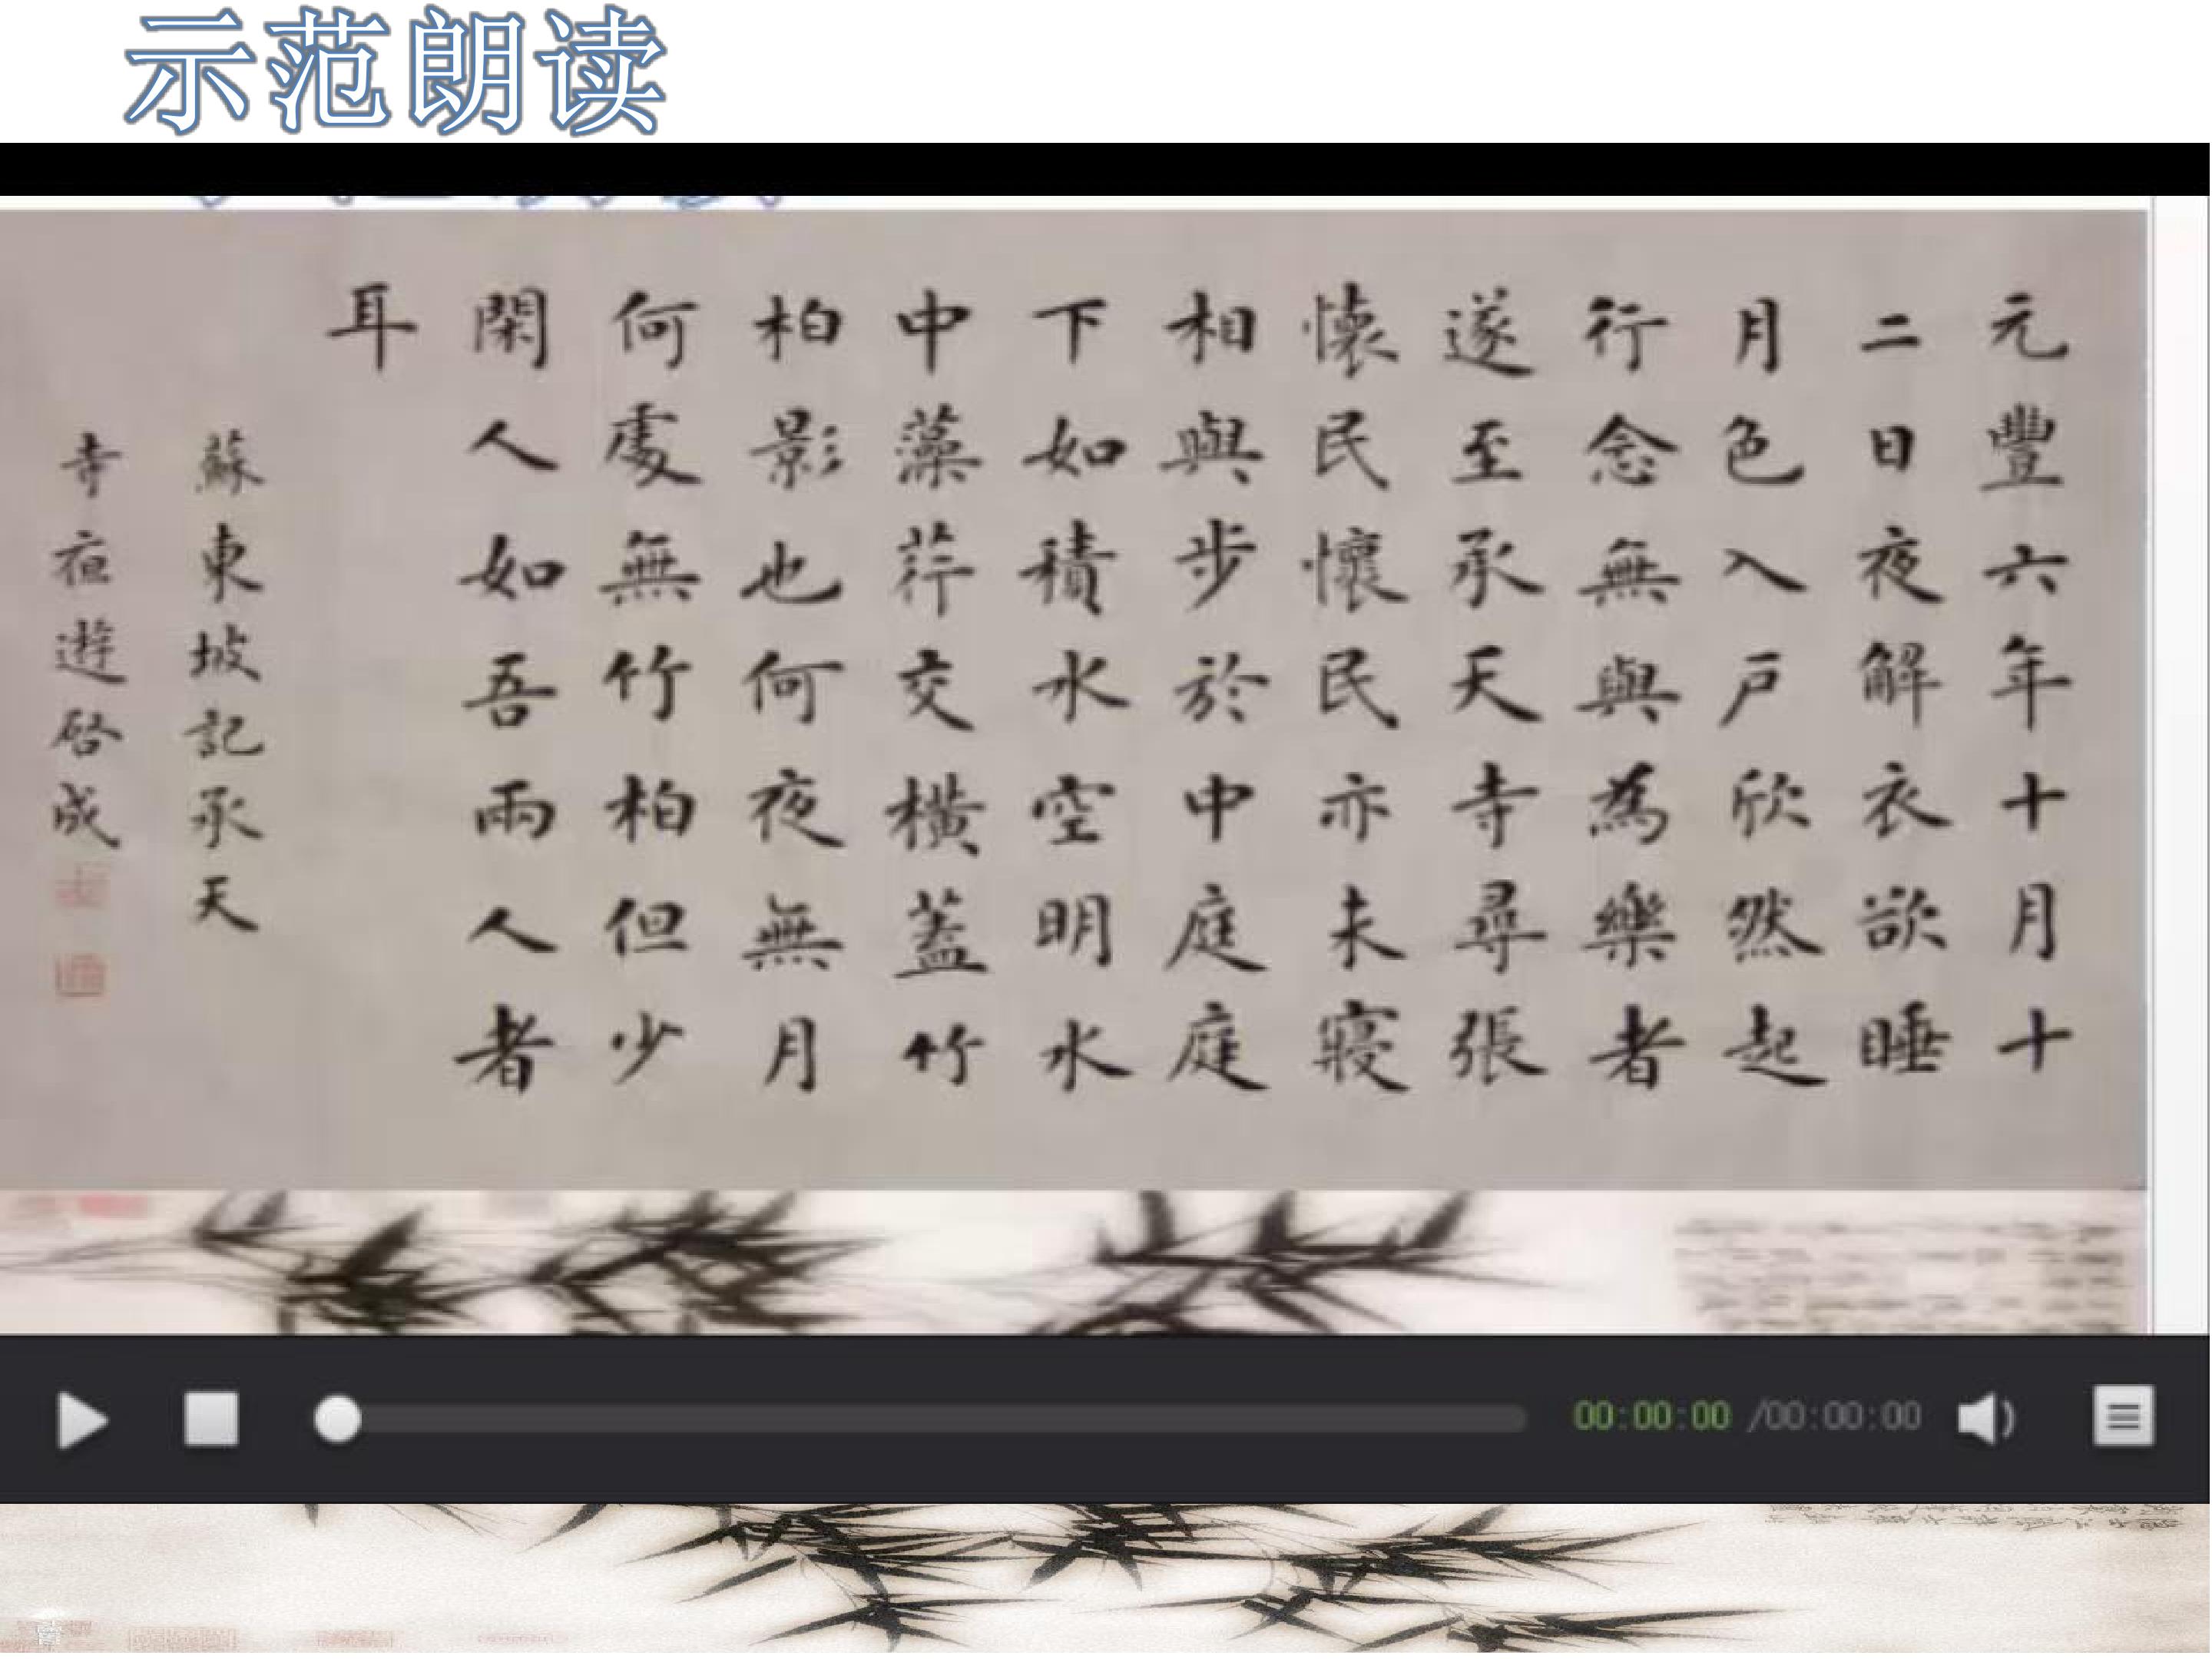 示范朗读
元豐六年十月十
二日夜解衣欲睡
月色入戶欣然起
行念無與為樂者
遂至承天寺尋張
懷民懷民亦未寢
相與步於中庭庭
下如積水空明水
中藻荇交橫蓋竹
柏影也何夜無月
何處無竹柏但少
閑人如吾兩人者
耳
蘇東坡記承天
寺夜遊啓成
00:00:00 /00:00:00